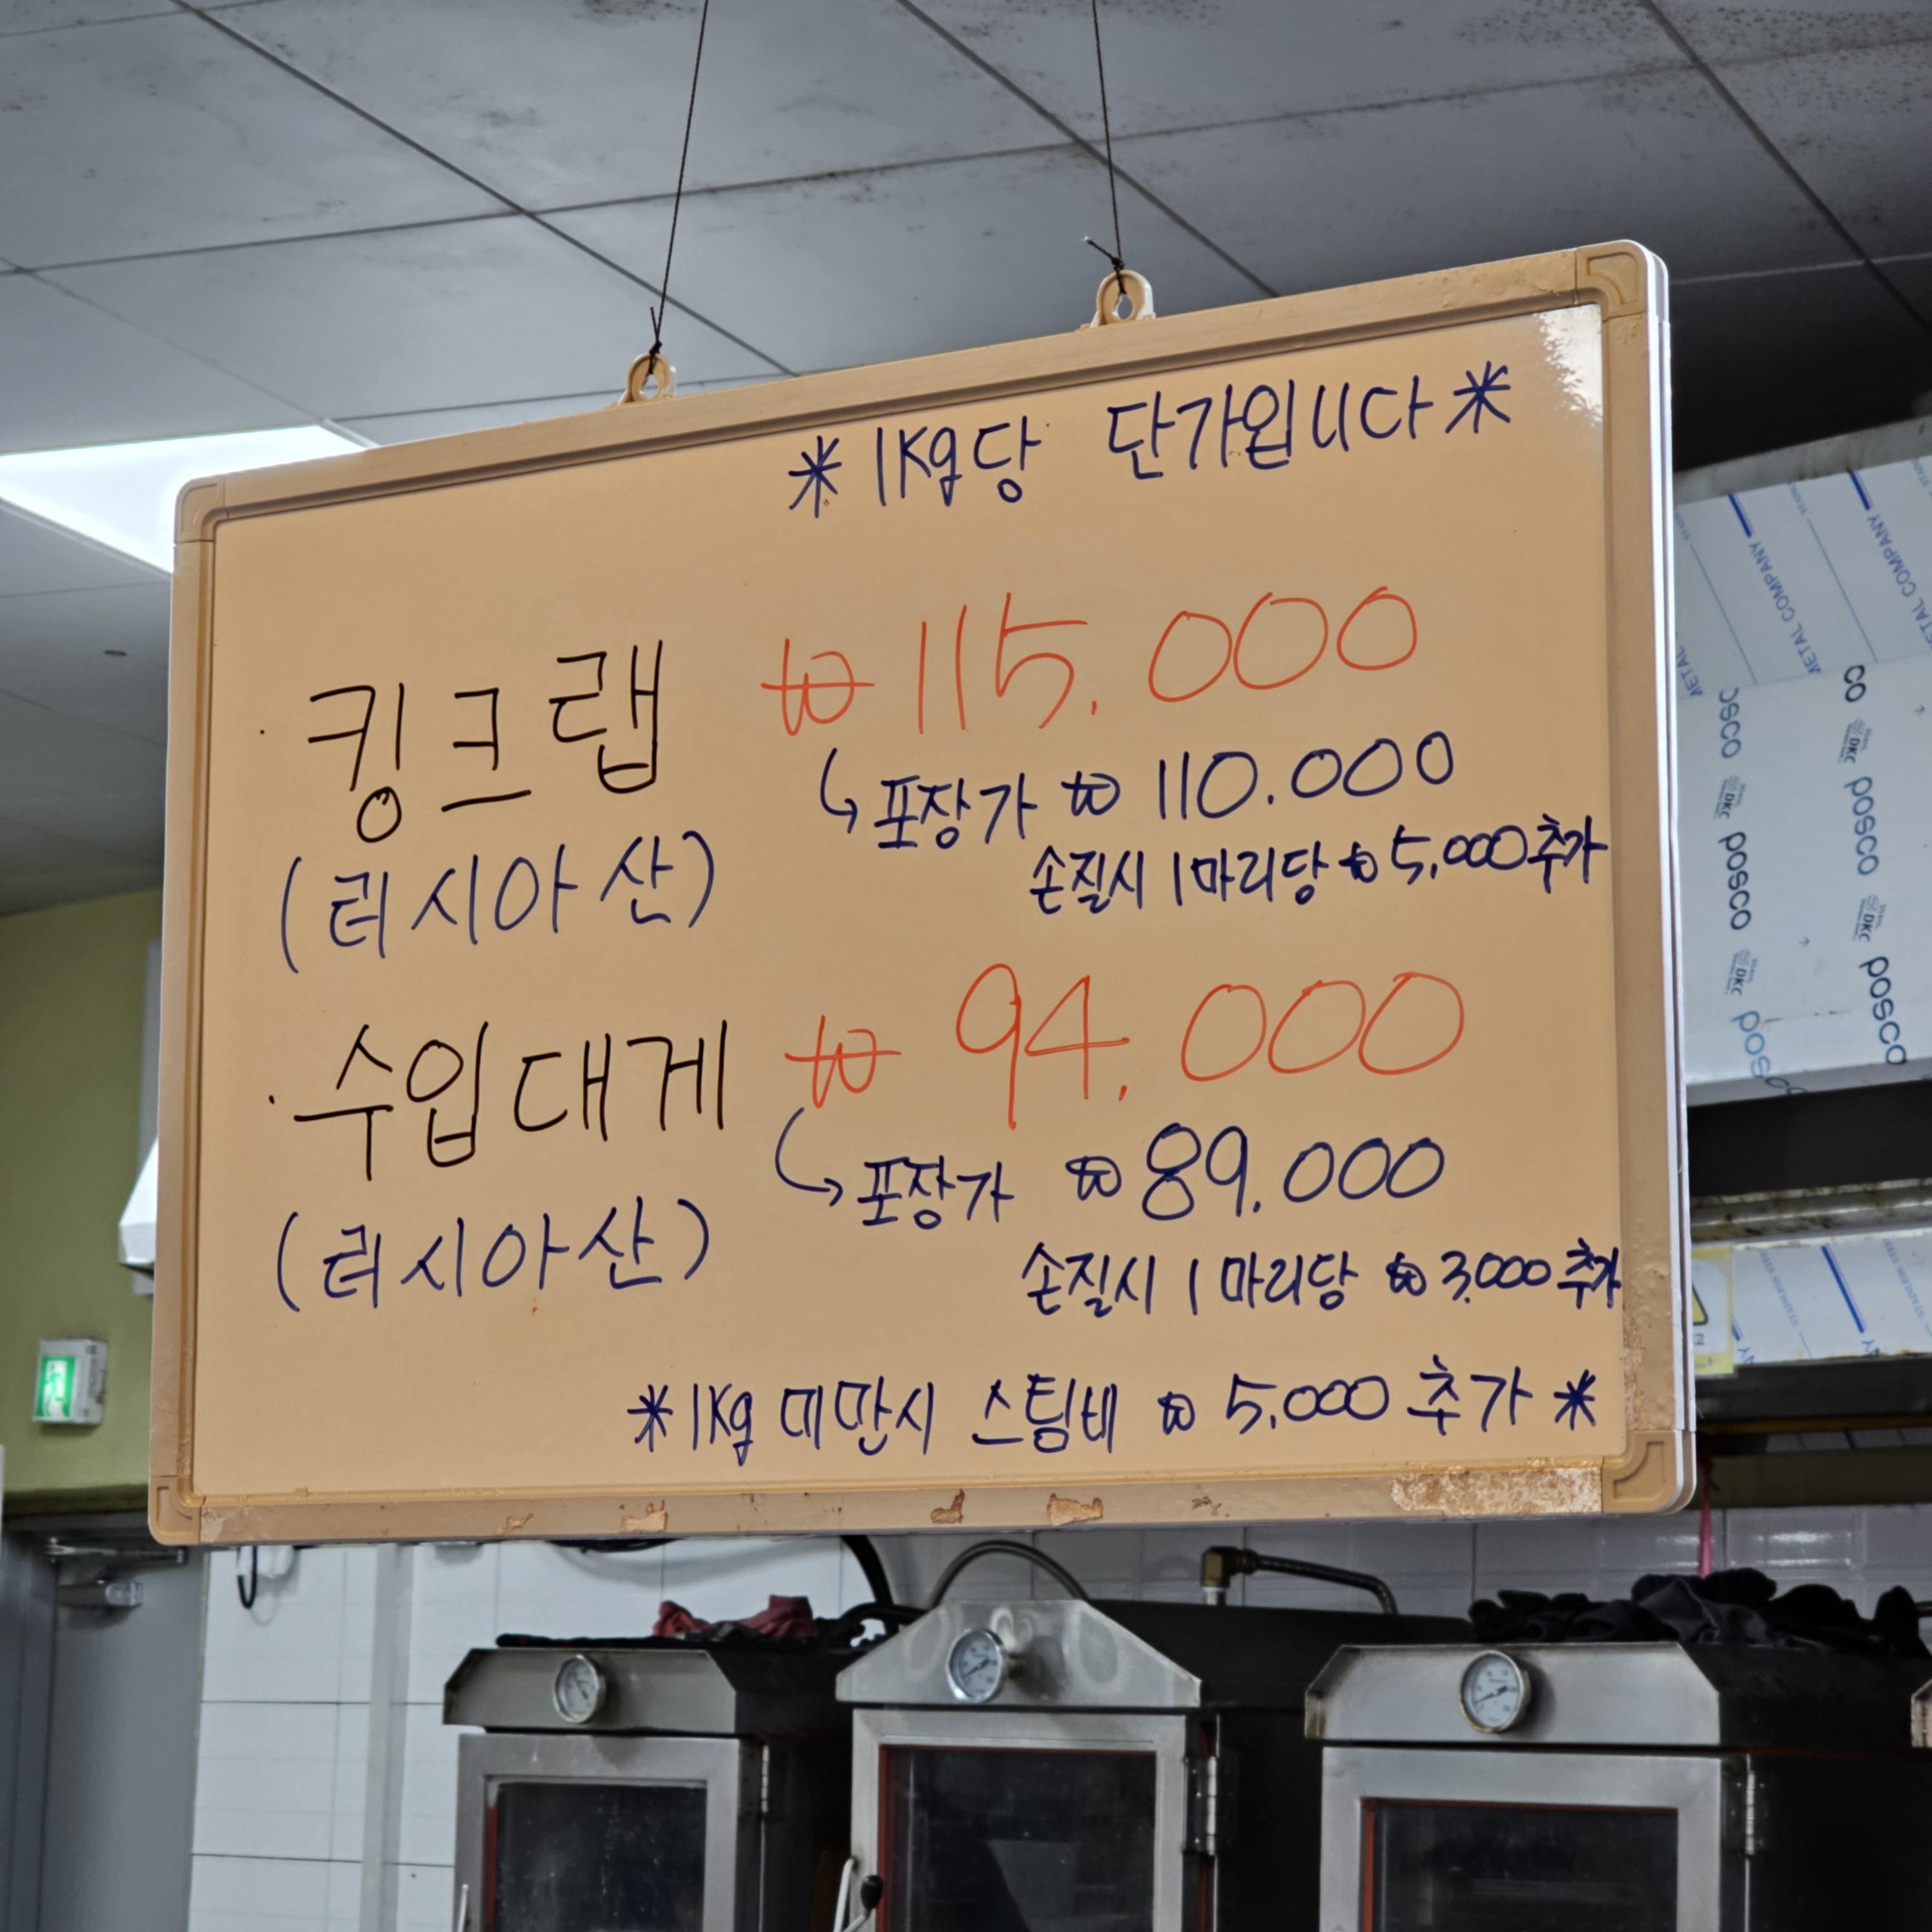 *1Kg당 단가입니다*
· 킹크랩 ₩115.000
↳포장가 ₩110.000
손질시 1마리당 ₩5,000추가
(러시아산)
· 수입대게 ₩94.000
↳포장가 ₩89.000
손질시 1마리당 ₩3,000추가
(러시아산)
*1Kg 미만시 스팀비 ₩5,000 추가*
METAL COMPANY
METAL COMPANY
posco
DKC
posco
DKC
posco
DKC
posco
DKC
posco